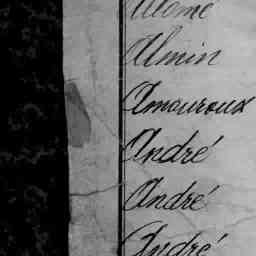 Almin
Amouroux
André
André
André